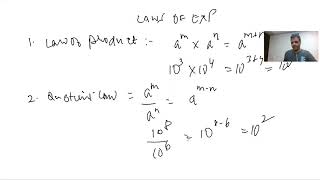 Laws OF EXP
1. Law of Product :- aᵐ × aⁿ = aᵐ⁺ⁿ
10³ × 10⁴ = 10³⁺⁴ = 10
2. Quotient Law = aᵐ/aⁿ = aᵐ⁻ⁿ
10⁸/10⁶ = 10⁸⁻⁶ = 10²